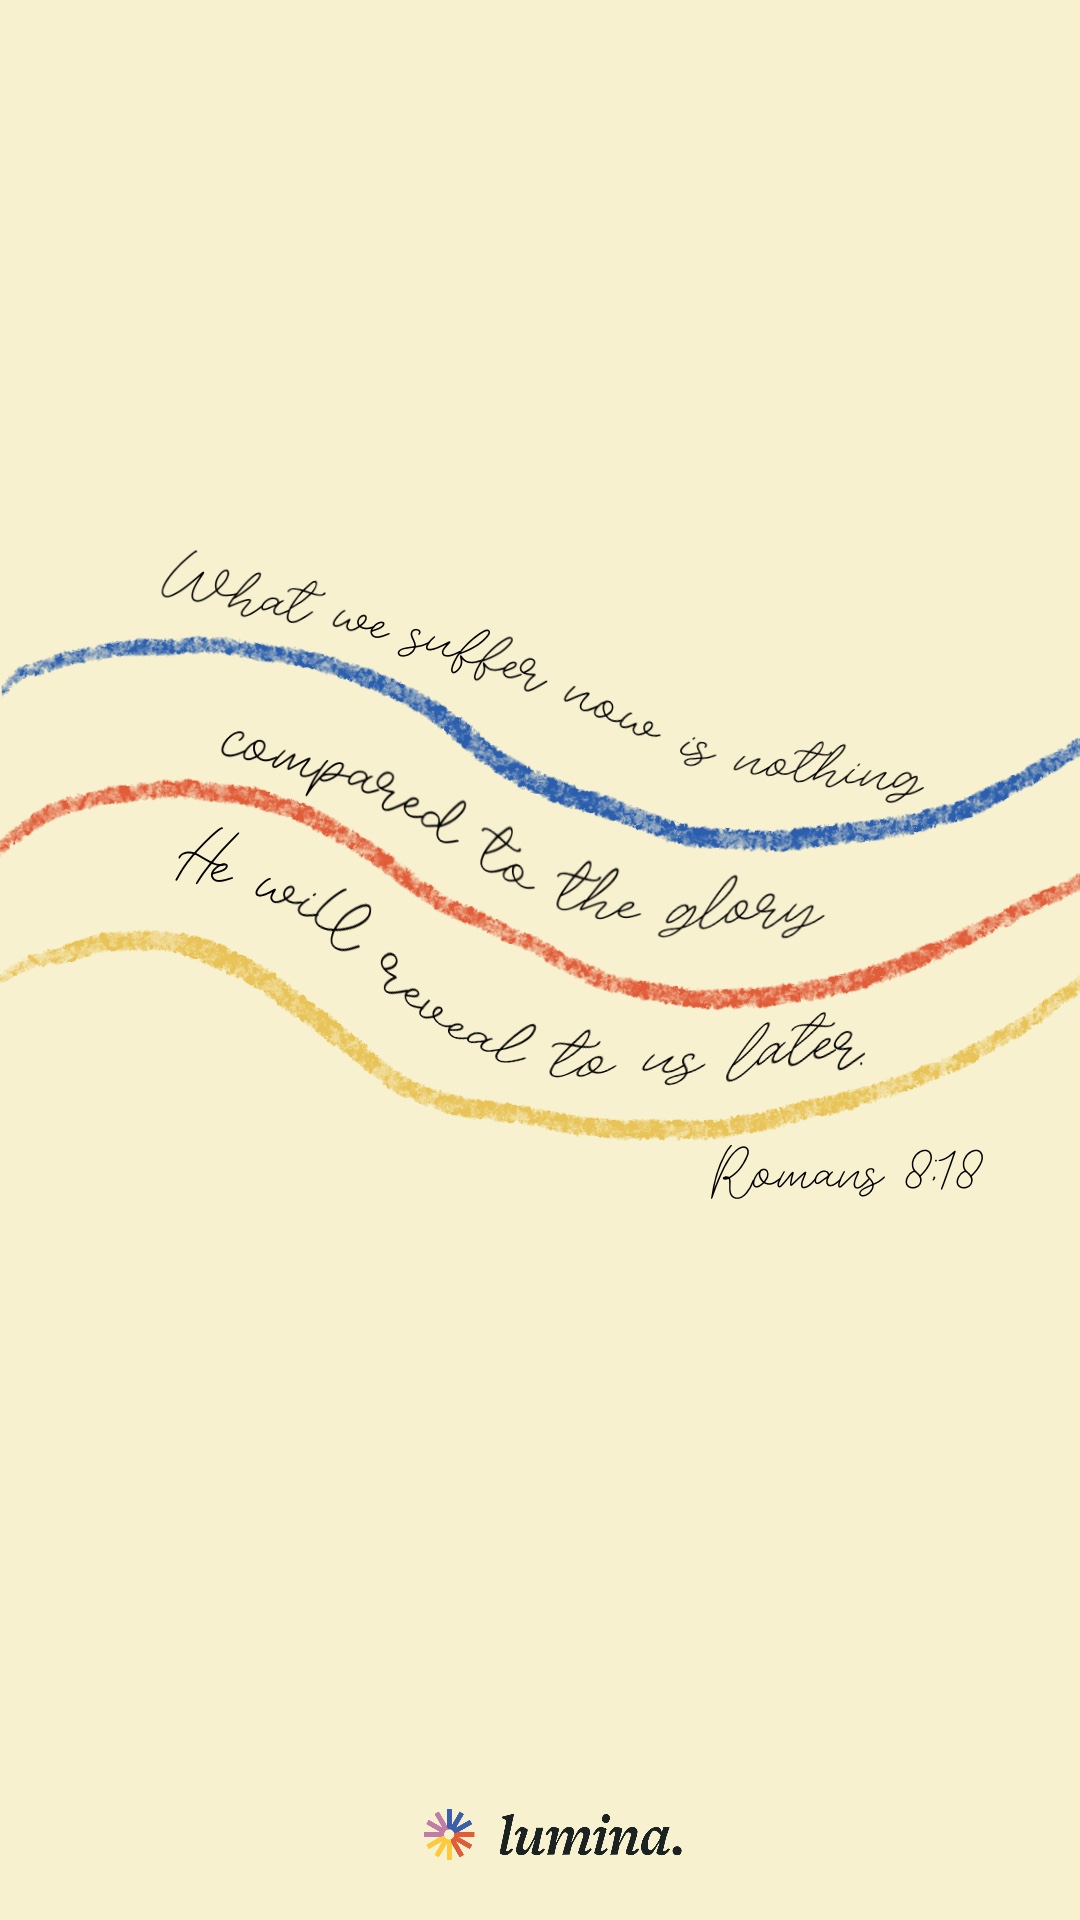 What we suffer now is nothing
compared to the glory
He will reveal to us later.
Romans 8:18
lumina.